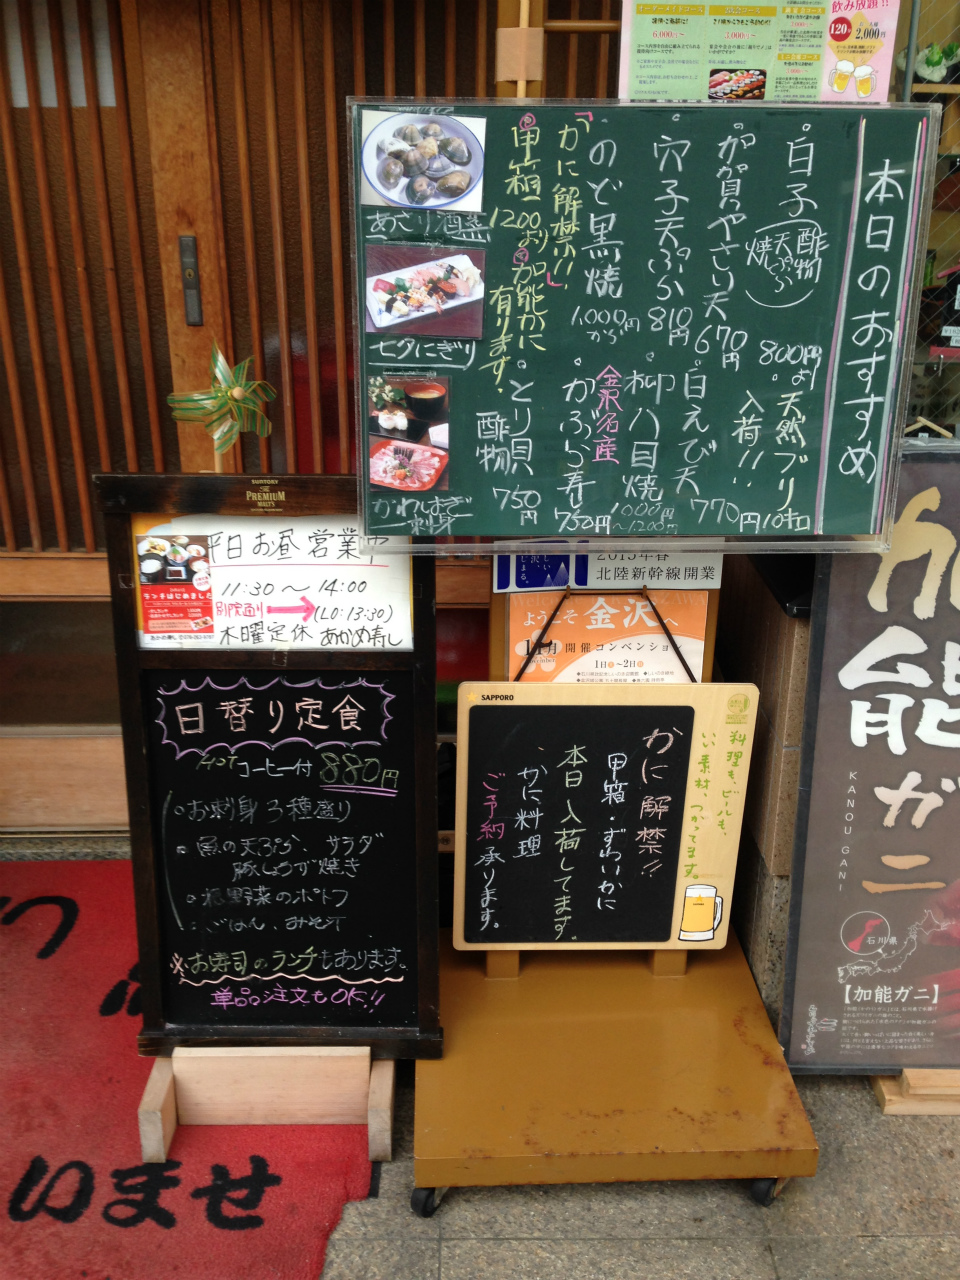 飲み放題!!
120分
2,000円
6,000円~
3,000円~
本日のおすすめ
白子(酢物 天ぷら 焼)
800円より
天然ブリ 10キロ
入荷!!
がが貝やさい天 670円
白えび天 770円
穴子天ぷら 810円
柳八目焼 1000円~1200円
金沢名産
のど黒焼 1,000円から
かぶら寿し 750円
「かに解禁!!」
甲箱 1200より
加能かに有ります。
とり貝酢物 750円
あさり酒蒸
七夕にぎり
かわはぎ刺身
SUNTORY
The PREMIUM MALT'S
平日お昼営業中
11:30~14:00
別院通り → (LO:13:30)
木曜定休 あかめ寿し
ランチはじめました
日替り定食
HOTコーヒー付 880円
お刺身3種盛り
魚の天ぷら、サラダ
豚しょうが焼き
根野菜のポトフ
ごはん、みそ汁
※お寿司のランチもあります。
単品注文もOK!!
2015年春
北陸新幹線開業
ようこそ金沢へ
11月開催コンベンション
1日~2日
SAPPORO
料理も、ビールも、
いい素材、つかってます。
かに解禁!!
甲箱・ずわいかに
本日入荷してます。
かに料理
ご予約承ります。
加能ガニ
KANOUGANI
石川県
【加能ガニ】
いませ